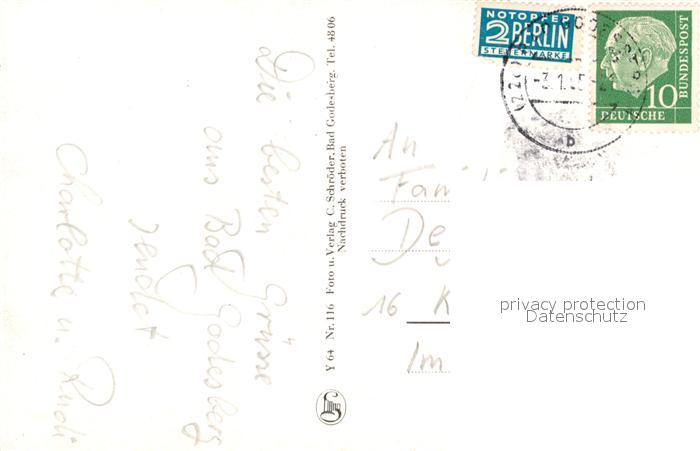 Die besten Grüsse
aus Bad Godesberg
sendet
Charlotte u. Rudi
Y 64 Nr. 116 Foto u. Verlag C. Schröder, Bad Godesberg, Tel. 4806
Nachdruck verboten
NOTOPFER
2 BERLIN
STEUERMARKE
DEUTSCHE
BUNDESPOST
10
b
An
Fam
De
16 K
Im
privacy protection
Datenschutz